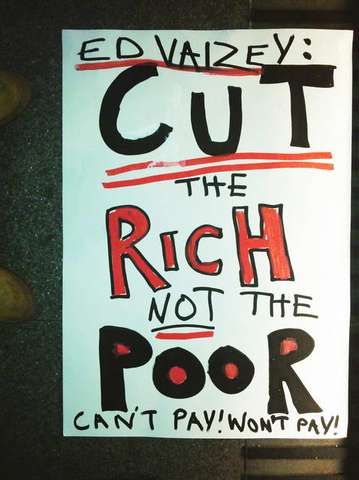 ED VAIZEY:
CUT
THE
RICH
NOT THE
POOR
CAN'T PAY! WON'T PAY!